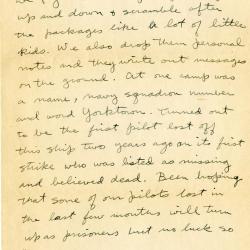 up and down & scramble after
the packages like a lot of little
kids. We also drop them personal
notes and they write out messages
on the ground. At one camp was
a name, navy squadron number
and word Yorktown. Turned out
to be the first pilot lost off
this ship two years ago on its first
strike who was listed as missing
and believed dead. Been hoping
that some of our pilots lost in
the last few months will turn
up as prisoners but no luck so